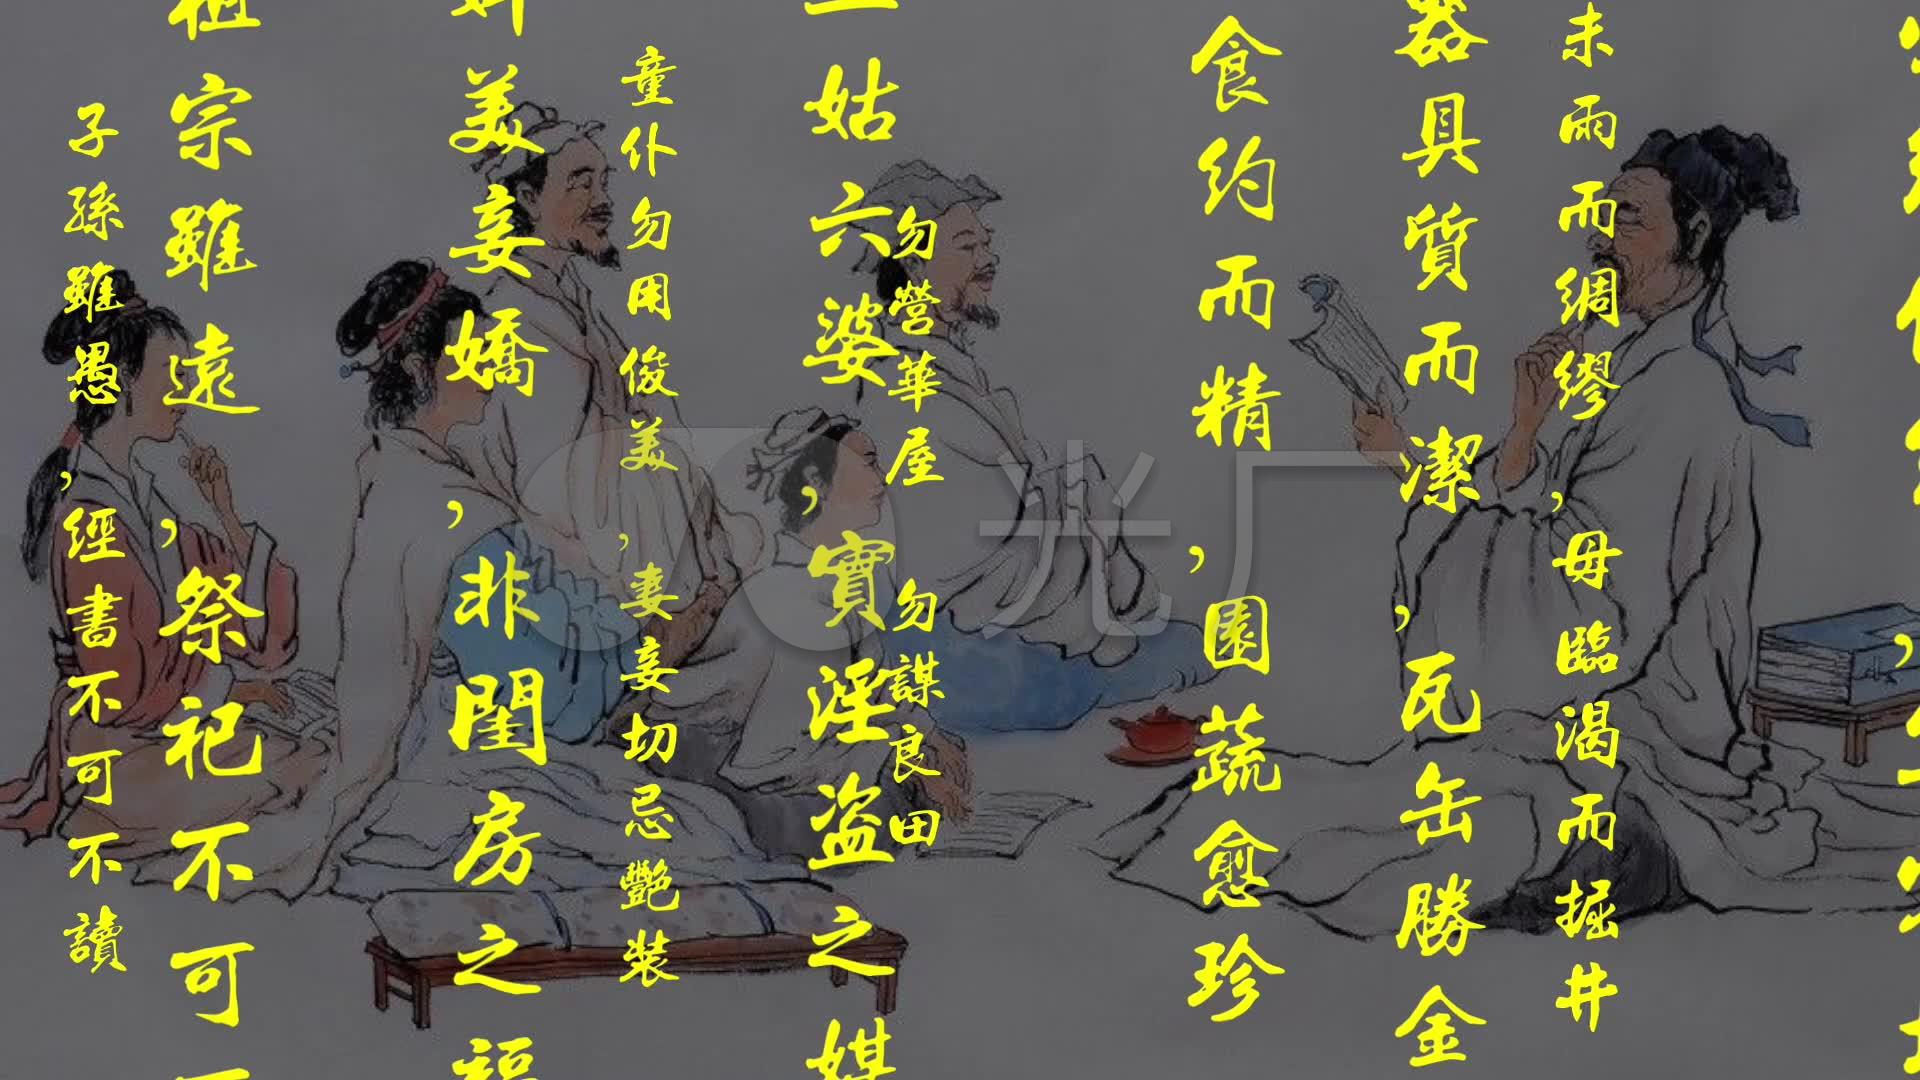 未雨而綢繆，毋臨渴而掘井
器具質而潔，瓦缶勝金
食約而精，園蔬愈珍
勿營華屋 勿謀良田
姑六婆，實淫盜之媒
童仆勿用俊美，妻妾切忌艷裝
美妾嬌，非閨房之福
祖宗雖遠，祭祀不可
子孫雖愚，經書不可不讀
光厂